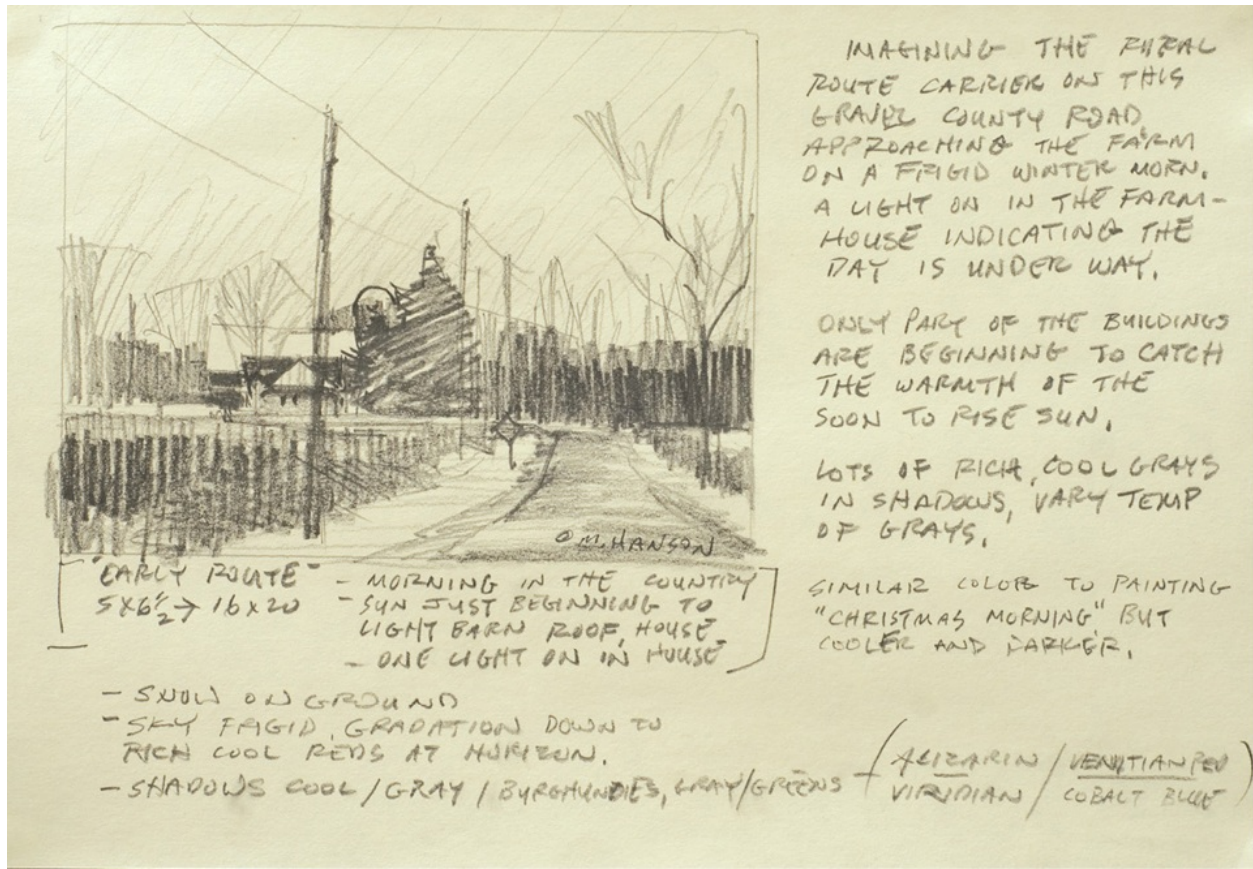 IMAGINING THE RURAL
ROUTE CARRIER ON THIS
GRAVEL COUNTY ROAD
APPROACHING THE FARM
ON A FRIGID WINTER MORN.
A LIGHT ON IN THE FARM-
HOUSE INDICATING THE
DAY IS UNDER WAY.
ONLY PART OF THE BUILDINGS
ARE BEGINNING TO CATCH
THE WARMTH OF THE
SOON TO RISE SUN.
LOTS OF RICH, COOL GRAYS
IN SHADOWS, VARY TEMP
OF GRAYS.
SIMILAR COLOR TO PAINTING
"CHRISTMAS MORNING" BUT
COOLER AND DARKER.
© M. HANSON
"EARLY ROUTE"
5x6½ → 16x20
- MORNING IN THE COUNTRY
- SUN JUST BEGINNING TO
LIGHT BARN ROOF, HOUSE
- ONE LIGHT ON IN HOUSE
- SNOW ON GROUND
- SKY FRIGID, GRADATION DOWN TO
RICH COOL REDS AT HORIZON.
- SHADOWS COOL/GRAY/BURGHUNDIES, GRAY/GREENS - (ALIZARIN / VENITIAN RED
VIRIDIAN / COBALT BLUE)